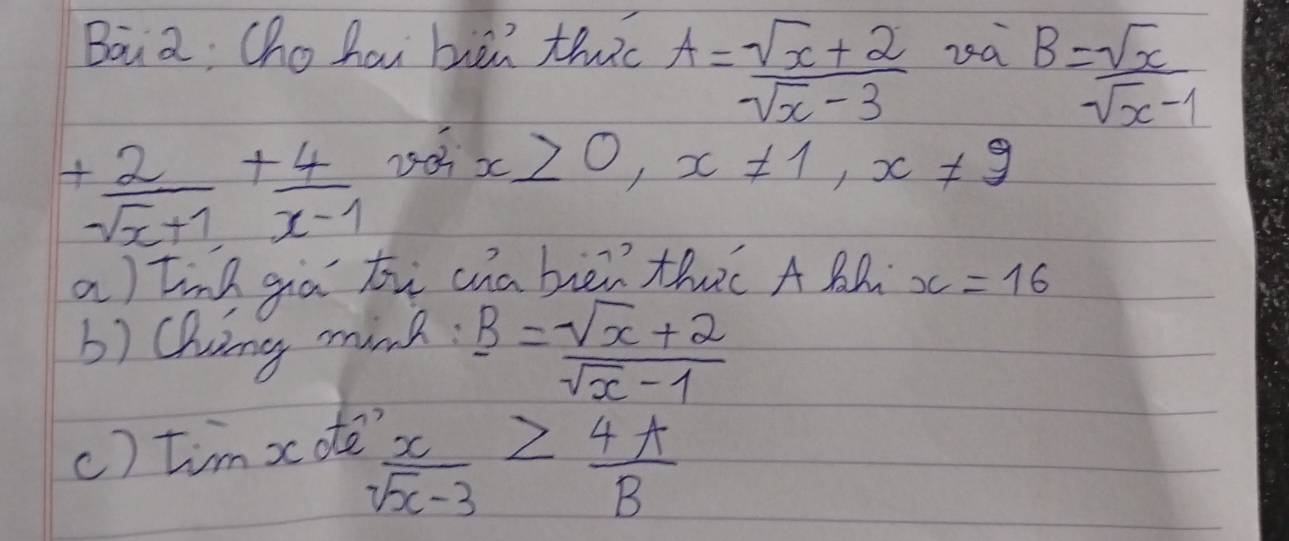 Bài 2: Cho hai biểu thức A = \frac{\sqrt{x}+2}{\sqrt{x}-3} và B = \frac{\sqrt{x}}{\sqrt{x}-1}
+ \frac{2}{\sqrt{x}+1} + \frac{4}{x-1} với x ≥ 0, x ≠ 1, x ≠ 9
a) Tính giá trị của biểu thức A khi x = 16
b) Chứng minh: B = \frac{\sqrt{x}+2}{\sqrt{x}-1}
c) Tìm x để \frac{x}{\sqrt{x}-3} ≥ \frac{4A}{B}